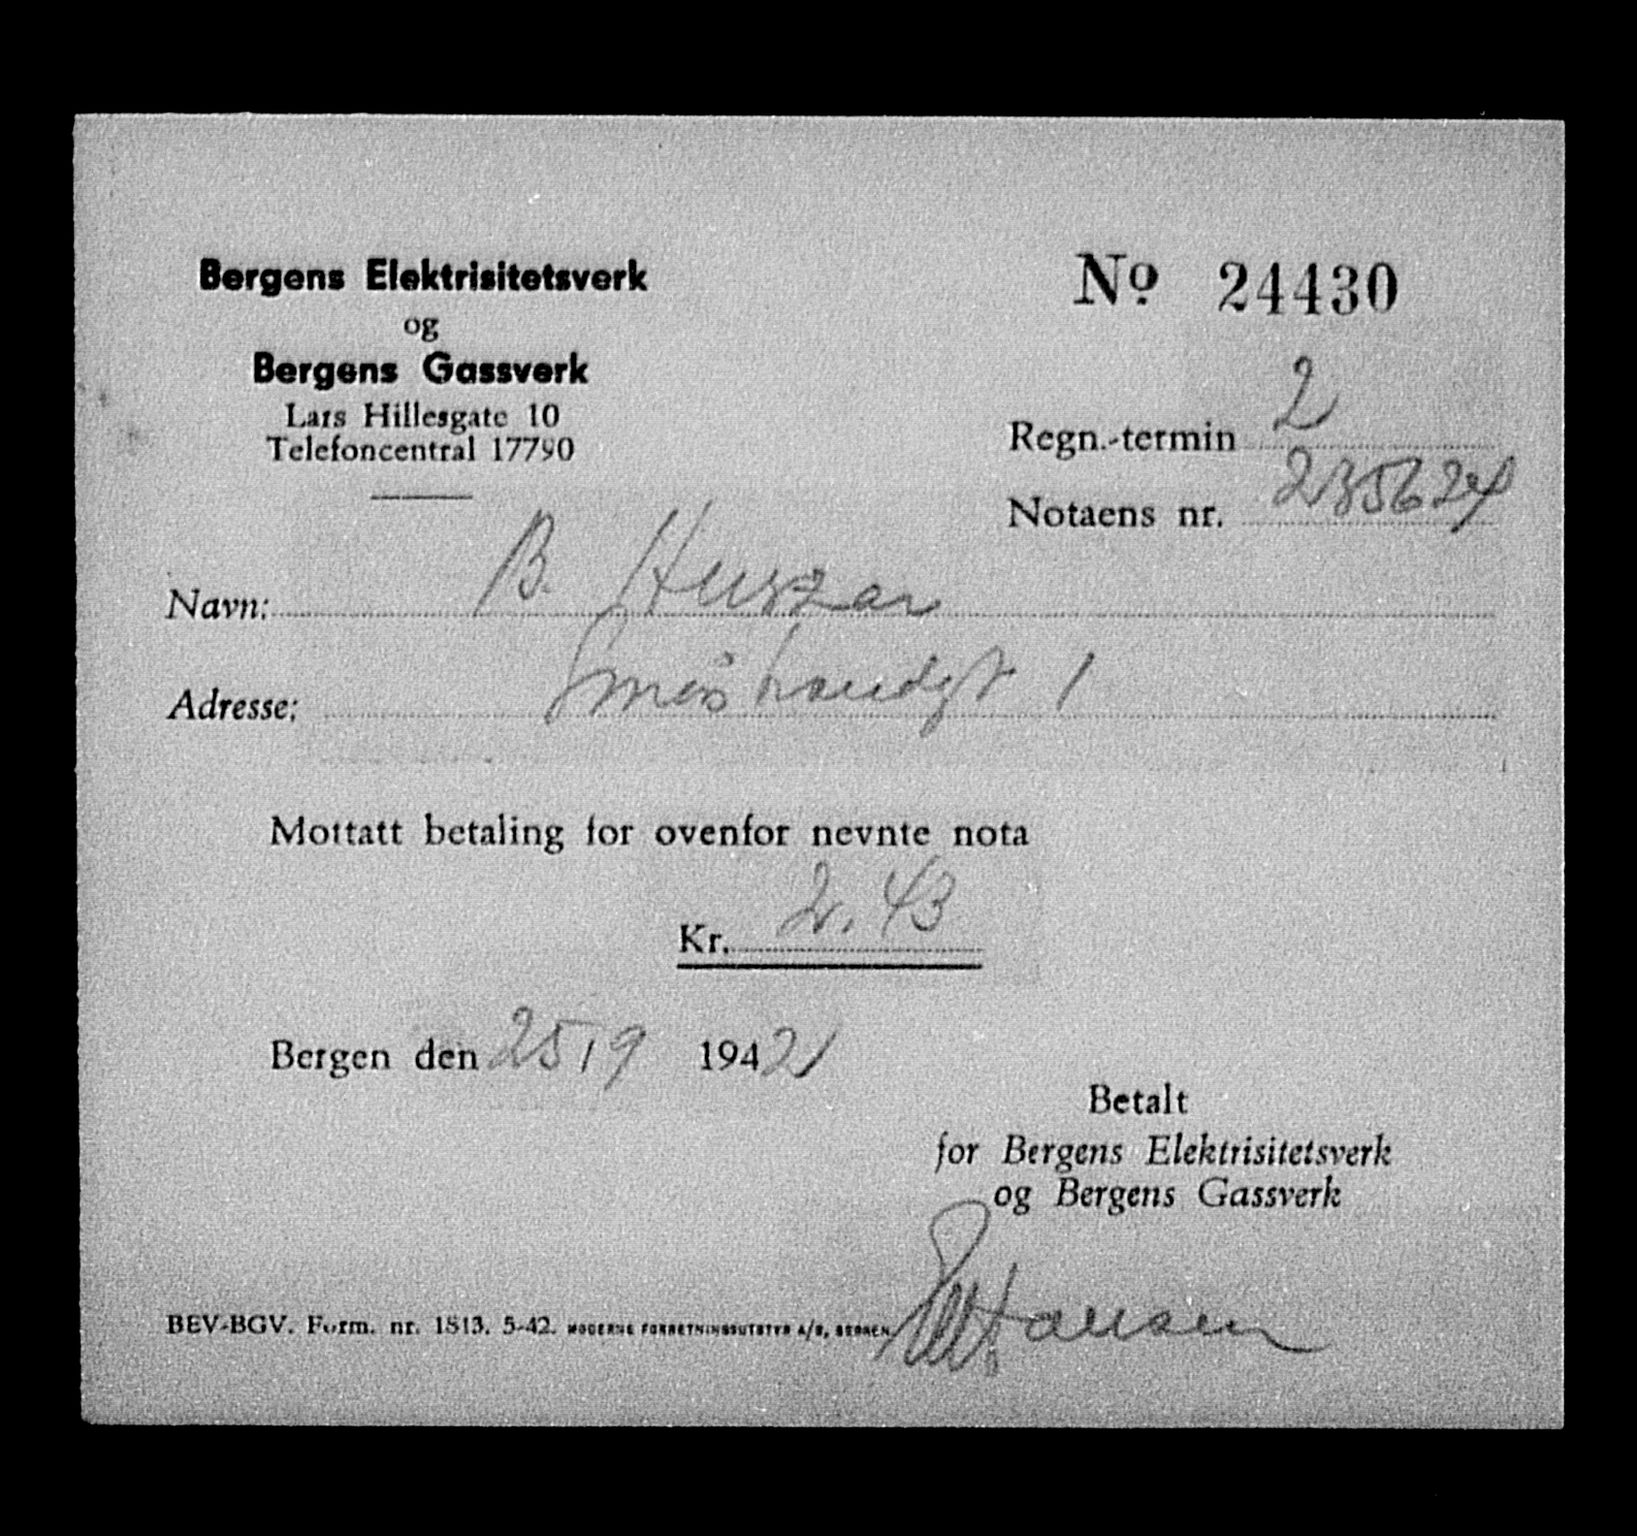 Bergens Elektrisitetsverk
og
Bergens Gassverk
Lars Hillesgate 10
Telefoncentral 17790
No 24430
Regn.-termin 2
Notaens nr. 235624
Navn: B. Huszar
Adresse: Småstrandgt 1
Mottatt betaling for ovenfor nevnte nota
Kr. 2.43
Bergen den 25/9 1942
Betalt
for Bergens Elektrisitetsverk
og Bergens Gassverk
Hansen
BEV-BGV. Form. nr. 1813. 5-42. MODERNE FORRETNINGSUTSTYR A/S, BERGEN.